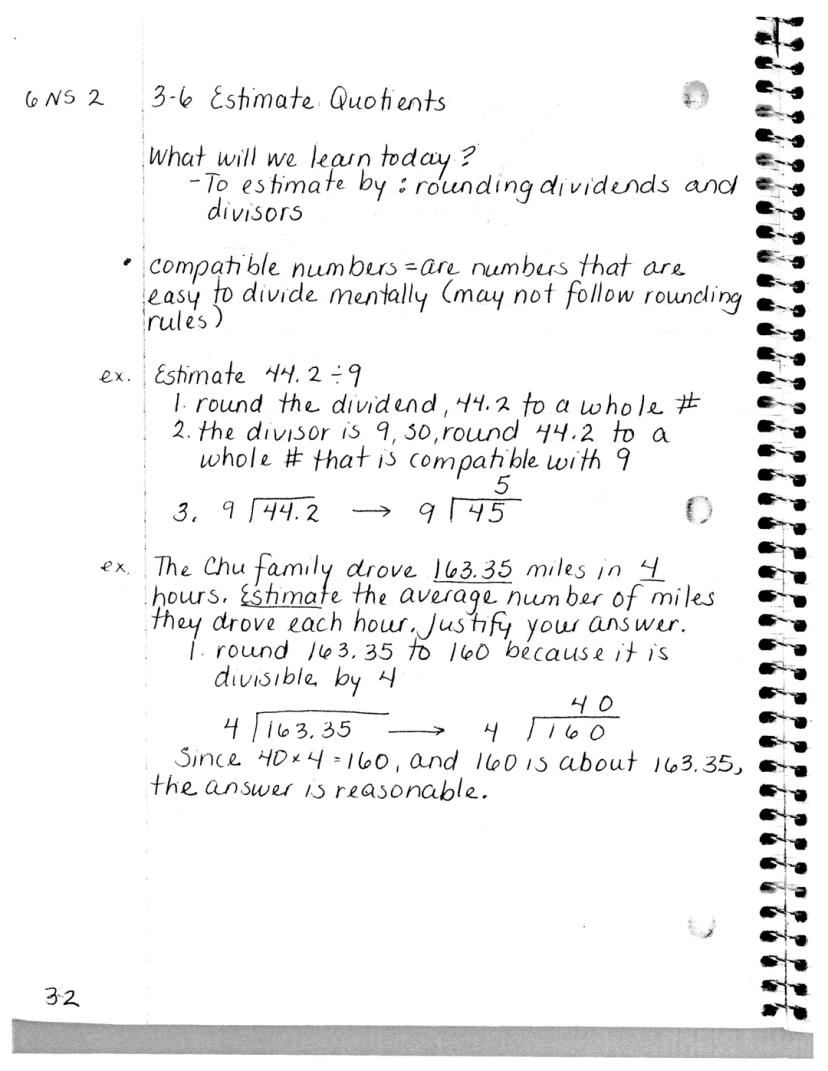 6 NS 2 3-6 Estimate Quotients
What will we learn today?
- To estimate by : rounding dividends and
divisors
• compatible numbers = are numbers that are
easy to divide mentally (may not follow rounding
rules)
ex. Estimate 44.2 ÷ 9
1. round the dividend, 44.2 to a whole #
2. the divisor is 9, so, round 44.2 to a
whole # that is compatible with 9
5
3. 9 ⟌44.2 → 9 ⟌45
ex. The Chu family drove 163.35 miles in 4
hours. Estimate the average number of miles
they drove each hour. Justify your answer.
1. round 163.35 to 160 because it is
divisible by 4
40
4 ⟌163.35 → 4 ⟌160
Since 40 × 4 = 160, and 160 is about 163.35,
the answer is reasonable.
32